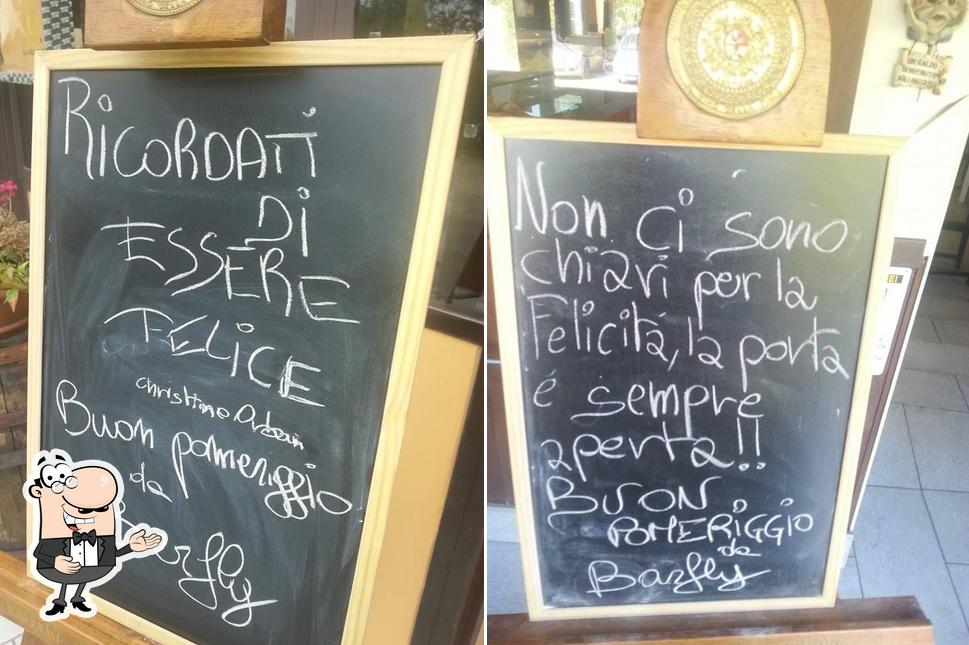 RiCORDATi
Di
ESSERE
FELiCE
christimo
Buon pomeriggio
da
Non ci sono
chiavi per la
Felicità, la porta
é sempre
aperta!!
BUON
POMERiGGiO
da
Barfly
UN CALDO
BENVENUTO
AGLI AMICI